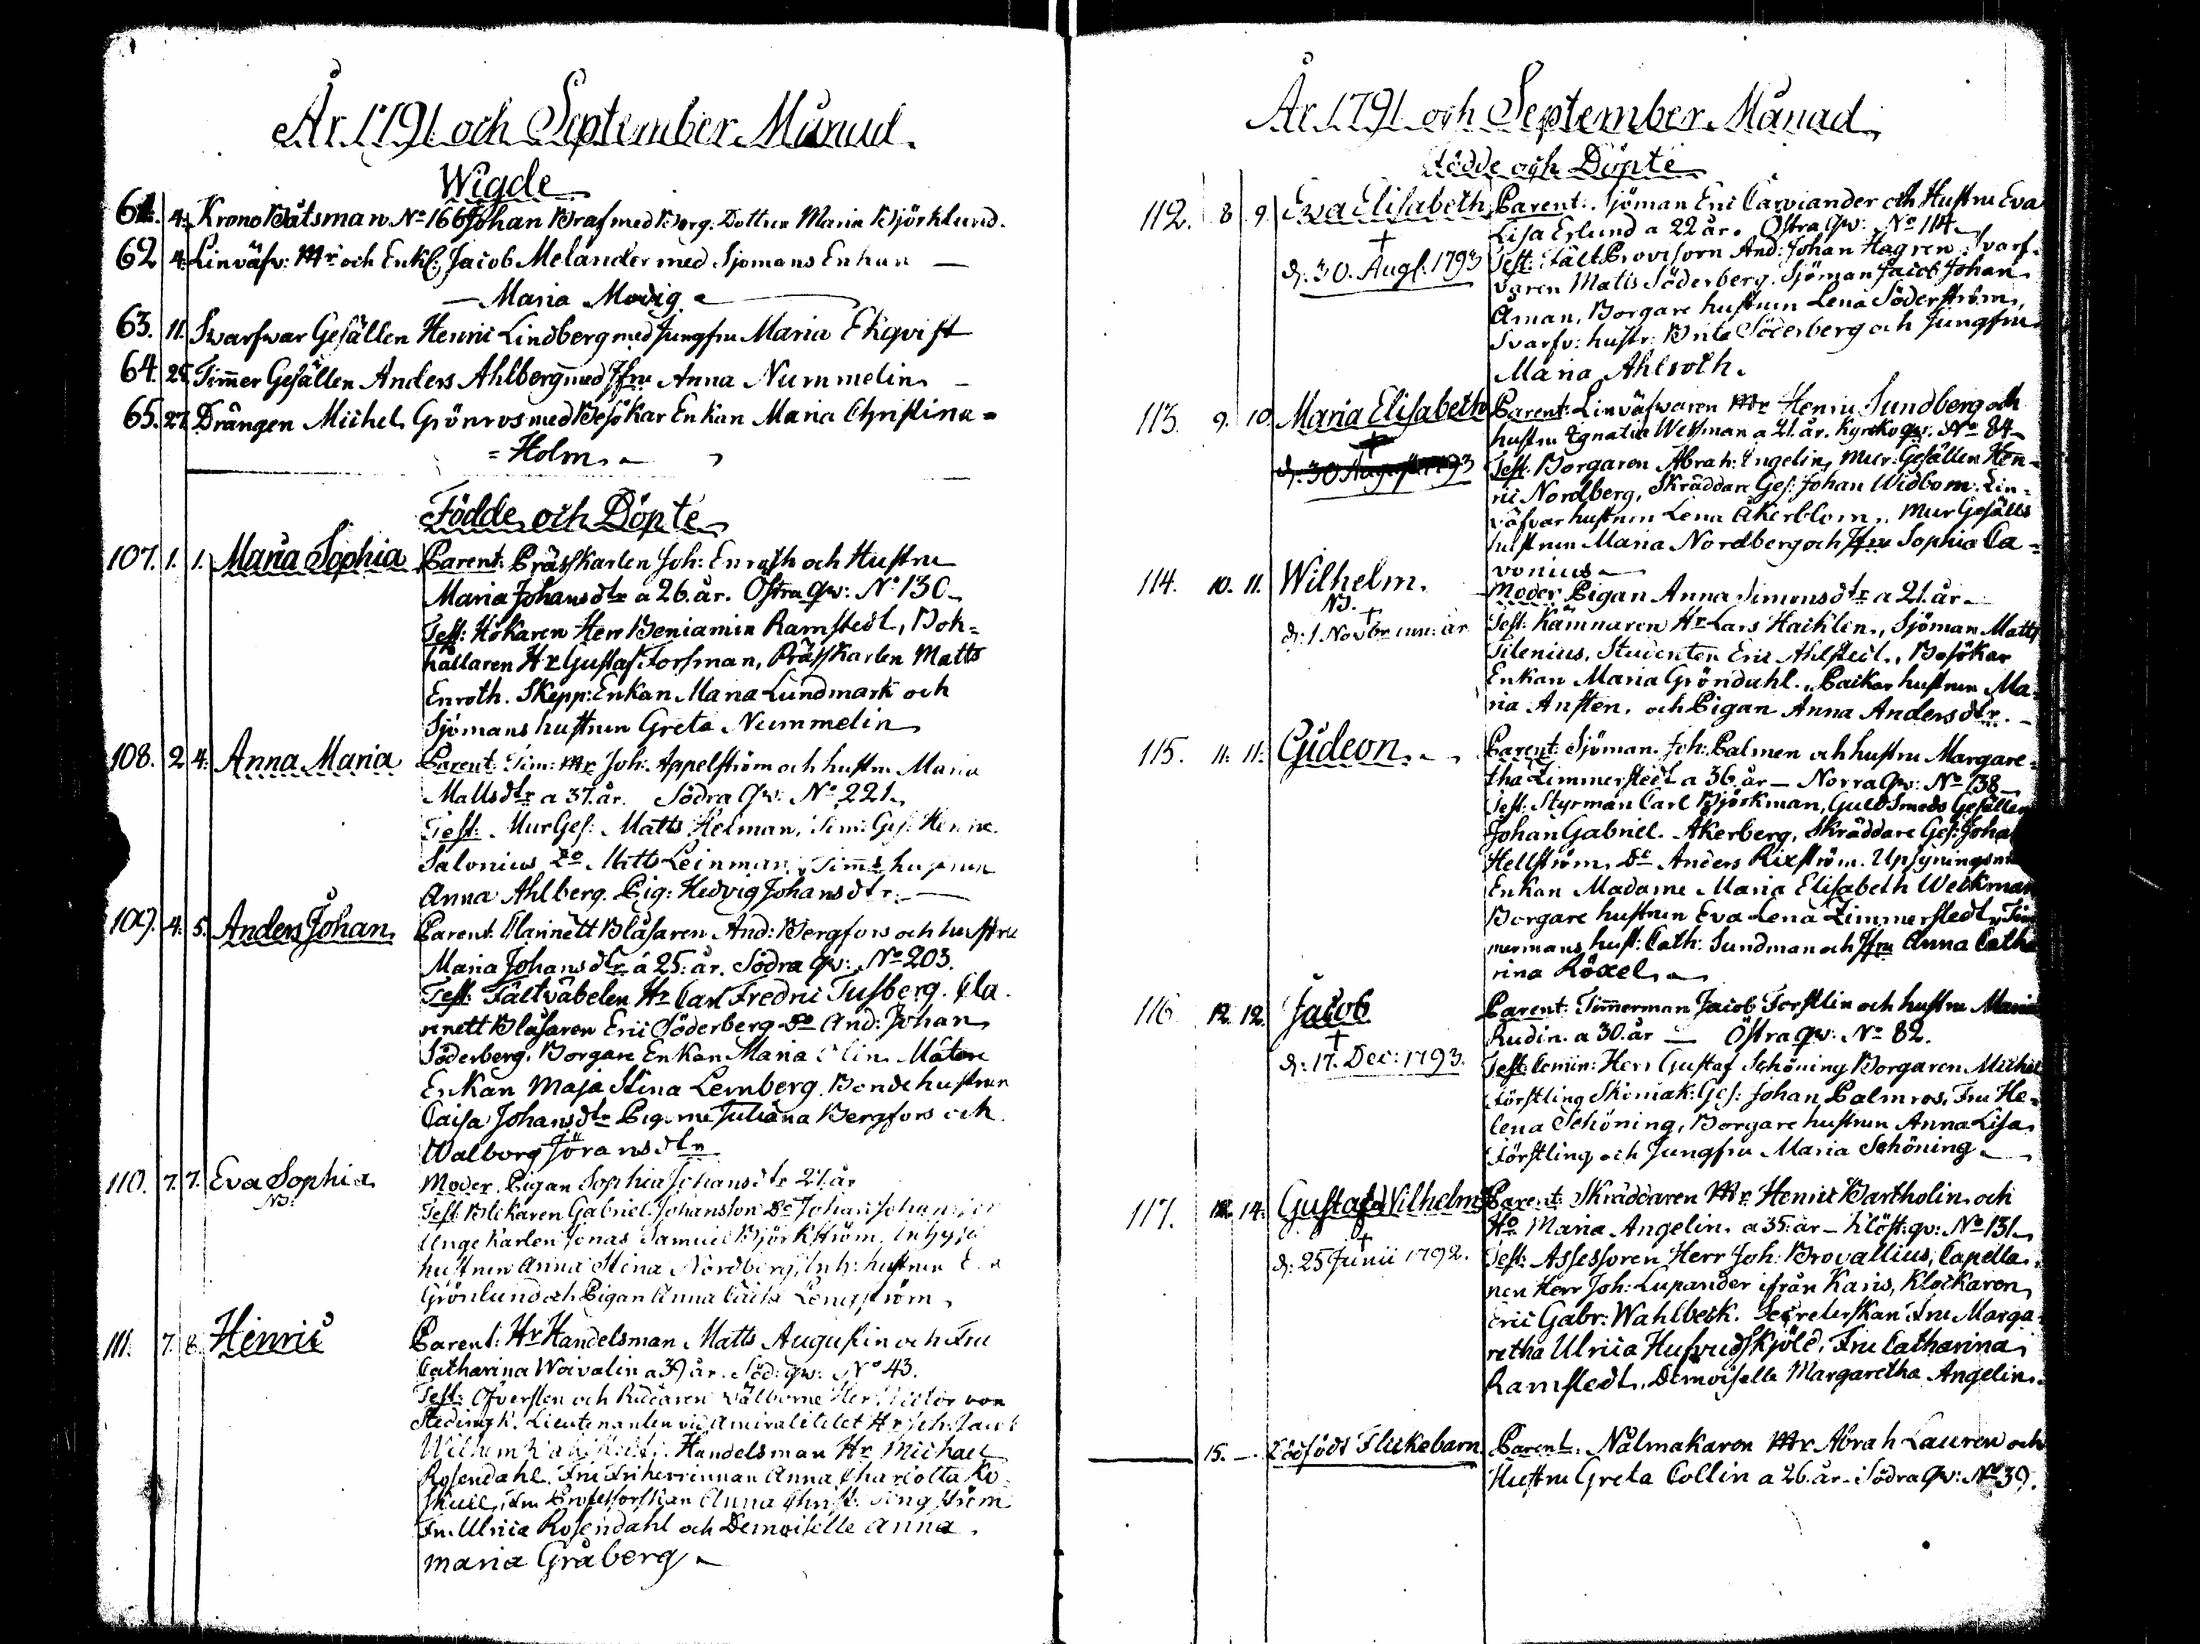 År 1791 och September Månad.
Wigde
61. 4. Krono Båtsman No 166 Johan Braf med Borg: Dottren Maria Björklund.
62 4. Linväfv: Mr och Enkl: Jacob Melander med Sjömans Enkan —
— Maria Modig —
63. 11. Svarfvar Gesällen Henric Lindberg med Jungfru Maria Ekqvist
64. 25. Timmer Gesällen Anders Ahlberg med Jfru Anna Nummelin —
65. 27. Drängen Michel Grönros med Besökar Enkan Maria Christina =
= Holm.
Födde och Döpte
107. 1. 1. Maria Sophia Parent: Prässkarlen Joh: Enroth och Hustru
Maria Johansdtr a 26. år. Östra qv: No 130
Test: Hökaren Herr Beniamin Ramstedt, Bok=
hållaren Hr Gustaf Forsman, Prässkarlen Matts
Enroth. Skepp: Enkan Maria Lundmark och
Sjömans hustrun Greta Nummelin
108. 2 4. Anna Maria Parent: Tim: Mr Joh: Appelström och hustru Maria
Mattsdtr a 37. år. Södra qv: No 221.
Test: Mur Ges: Matts Helman, Tim: Ges: Henric
Salonius Do Matts Leinman, Timms hustrun
Anna Ahlberg. Pig: Hedvig Johansdtr. —
109. 4. 5. Anders Johan Parent: Clarinett Blåsaren And: Bergfors och hustru
Maria Johansdtr á 25. år. Södra qv: No 203.
Test: Fältväbelen Hr Carl Fredric Tufberg. Cla
rinett Blåsaren Eric Söderberg Do And: Johan
Söderberg, Borgare Enkan Maria Olin Mätare
Enkan Maja Stina Lemberg. Bonde hustrun
Caisa Johansdtr Pigorne Juliana Bergfors och
Walborg Jöransdtr
110. 7. 7. Eva Sophia Moder. Pigan Sophia Johansdtr 21. år
NB. Test. Blekaren Gabriel Johansson Do Johan
Unge Karlen Jonas Samuel Björkström,
hustrun Anna Stina Nordberg, Inh: hustrun
Grönlund och Pigan Anna Caisa Lengström
111. 7. 8. Henric Parent: Hr Handelsman Matts Augustin och Fru
Catharina Woivalin a 39 år. Söd: qv: No 43.
Test: Öfversten och Riddaren Välborne Herr Victor von
Stedingk. Lieutenanten vid Amiralitetet Hr Joh: Jacob
Wilhelm Handelsman Hr Michael
Rosendahl. Fru Friherrinnan Anna Charlotta Ko
skull, Fru Professorskan Anna Christ:
Fru Ulrica Rosendahl och Demoiselle Anna
Maria Gråberg
År 1791 och September Månad.
Födde och Döpte
112. 8 9. Eva Elisabeth Parent: Sjöman Eric Carviander och Hustru Eva
Lisa Erlund a 22 år. Östra qv: No 114
† Test: Fält Provisorn And: Johan Hagren, Svarf-
d: 30. Aug. 1793 varen Matts Söderberg. Sjöman Jacob Johan
Åman, Borgare hustrun Lena Söderström,
Svarfv: hustr: Brita Söderberg och Jungfru
Maria Ahlroth.
113. 9. 10. Maria Elisabeth Parent: Linväfvaren Mr Henric Sundberg och
hustru Egnatia Weckman a 21. år. Kyrko qv: No 84
† d: 30 August 1793 Test: Borgaren Abrah: Engelin, Mur: Gesällen Hen=
ric Nordberg, Skräddare Ges: Johan Widbom. Lin=
väfvar hustrun Lena Åkerblom, Mur Gesälls
hustrun Maria Nordberg och Jfru Sophia Ca=
vonius
114. 10. 11. Wilhelm. Moder Pigan Anna Simonsdtr a 21. år
NB. † Test: Kämnaren Hr Lars Haihlen, Sjöman Matts
d: 1 Novbr inne: år Silenius, Studenten Eric Ahlstedt, Besökar
Enkan Maria Gröndahl. Packar hustrun Ma=
ria Ansten, och Pigan Anna Andersdtr. —
115. 11. 11. Gideon. Parent: Sjöman Joh: Palmen och hustru Margare=
tha Zimmerstedt a 36. år — Norra qv: No 138
Test: Styrman Carl Björkman, Guld Smeds Gesällen
Johan Gabriel Åkerberg, Skräddare Ges: Johan
Hellström, Do Anders Rixström. Upsynings
Enkan Madame Maria Elisabeth Weckman
Borgare hustrun Eva Lena Zimmerstedt, Tim
mermans hust: Cath: Sundman och Jfru Anna Catha
rina Röxel
116. 12. 12. Jacob Parent: Timmerman Jacob Forstlin och hustru Maria
Rudin a 30. år — Östra qv: No 82.
† d: 17. Dec: 1793. Test: Comin: Herr Gustaf Schöning Borgaren Michel
Förstling Skomak: Ges: Johan Palmros, Fru He=
lena Schöning, Borgare hustrun Anna Lisa
Förstling och Jungfru Maria Schöning
117. 14. Gustaf Wilhelm Parent: Skräddaren Mr Henric Bartholin och
Ho Maria Angelin a 35. år — Klöst: qv: No 131
† d: 25 Junii 1792. Test: Assessoren Herr Joh: Brovallius, Capella
nen Herr Joh: Lupander ifrån Karis, Klockaren
Eric Gabr: Wahlbeck. Secreterskan Fru Marga=
retha Ulrica Hufvudskjöld, Fru Catharina
Ramstedt, Demoiselle Margaretha Angelin.
15. — Dödfödt Flickebarn Parent: Nålmakaren Mr Abrah Lauren och
Hustru Greta Collin a 26. år. Södra qv: No 39.